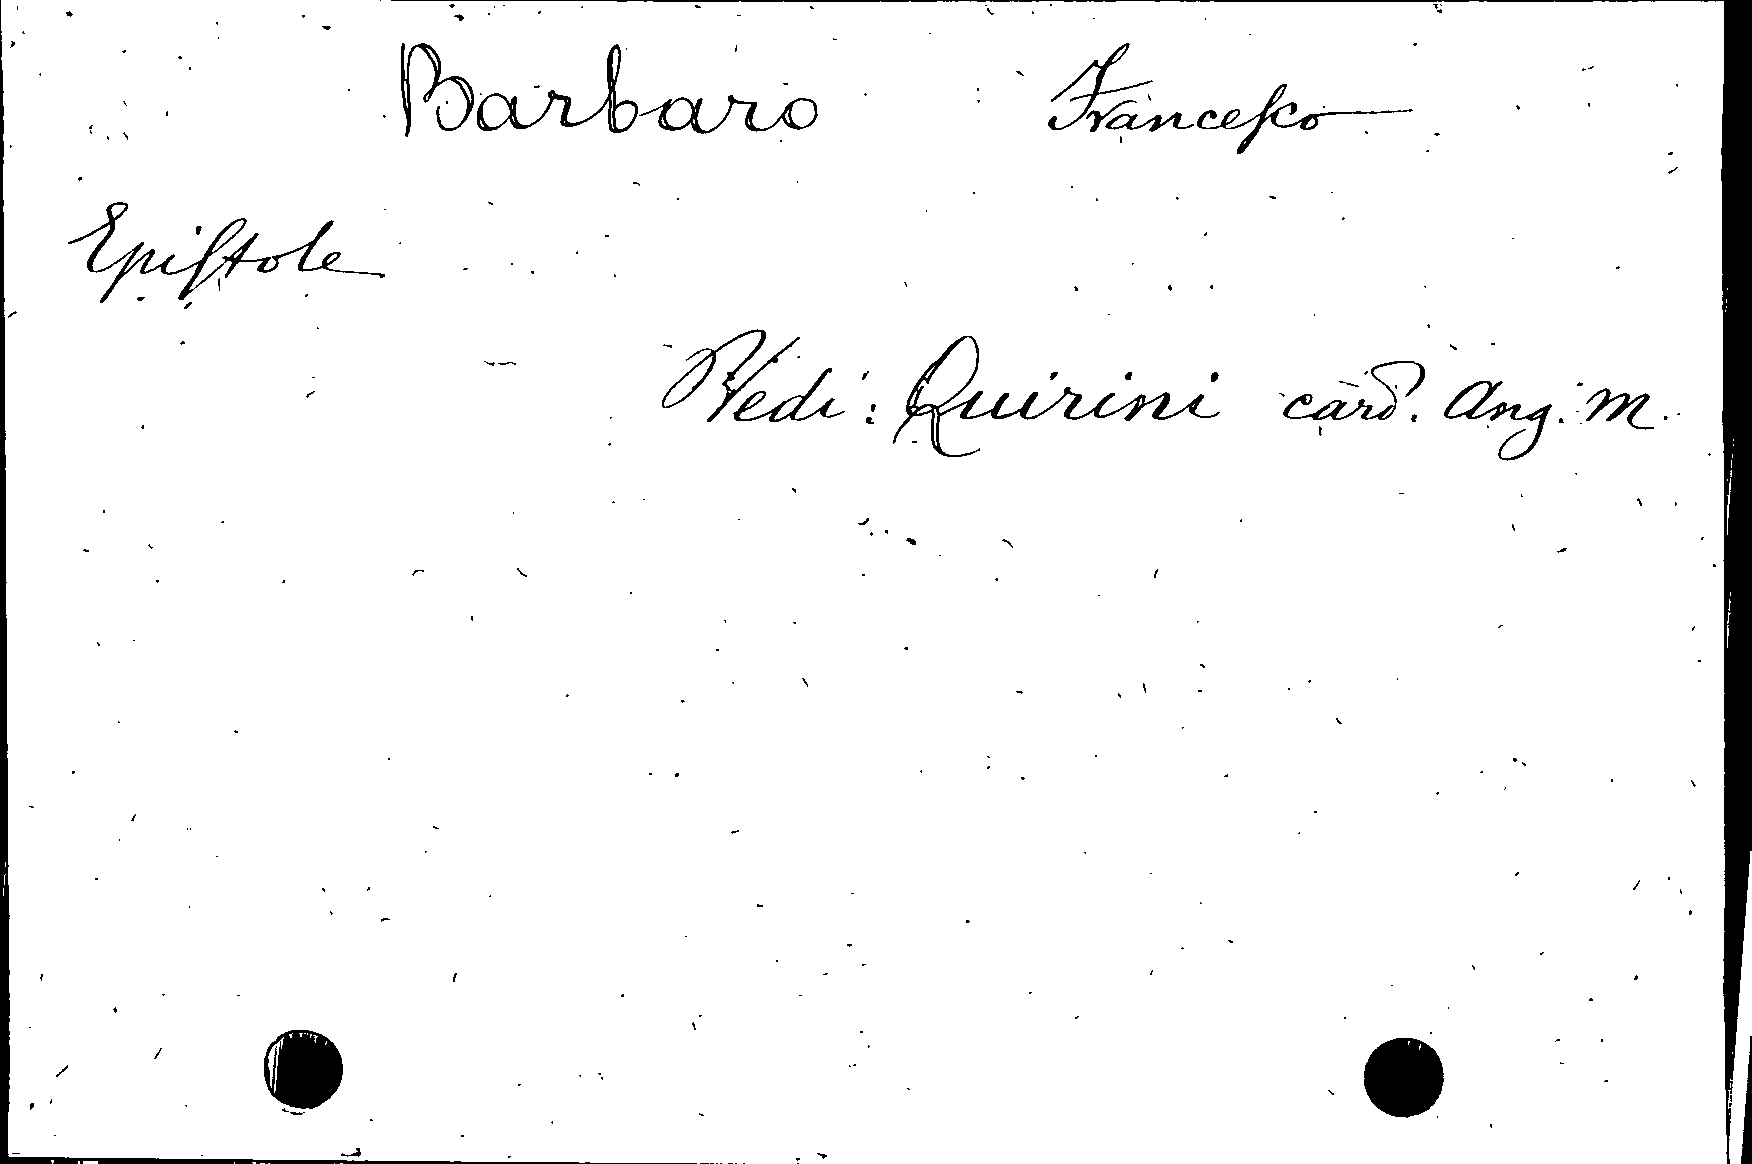 Barbaro Francesco
Epistole
Vedi: Quirini card. Ang. M.